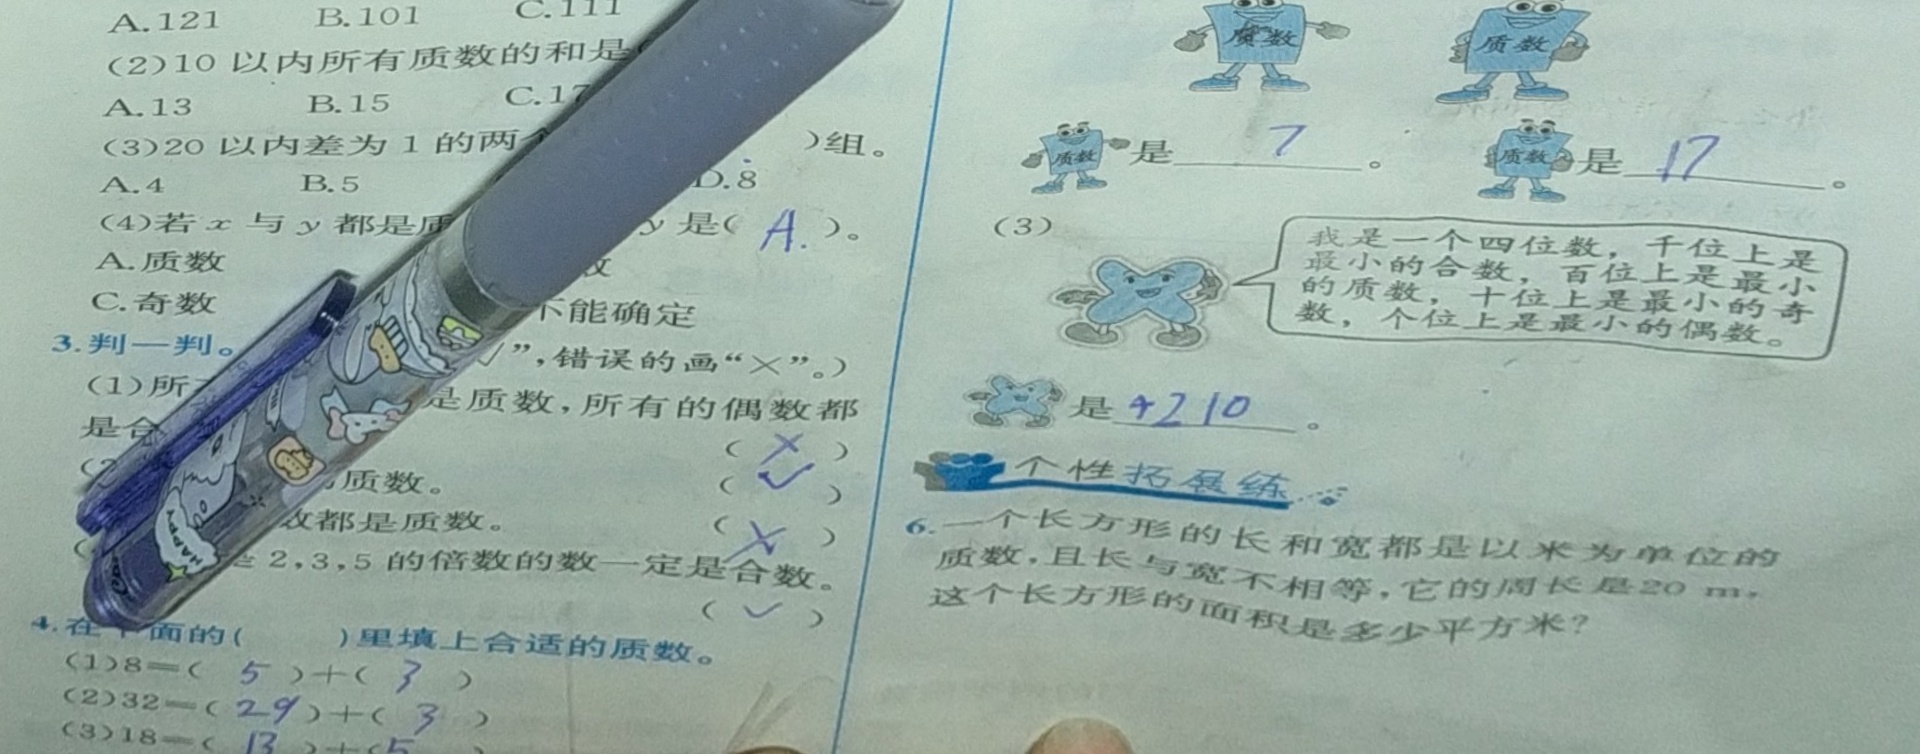 A.121 B.101 C.111
(2)10 以内所有质数的和是
A.13 B.15 C.17
(3)20 以内差为 1 的两 )组。
A.4 B.5 D.8
(4)若 x 与 y 都是质 y 是( A. )。
A.质数 数
C.奇数 不能确定
3.判一判。 √”,错误的画“×”。)
(1)所 是质数,所有的偶数都
是合 ( × )
(2 质数。 ( √ )
数都是质数。 ( × )
( 是 2,3,5 的倍数的数一定是合数。
( √ )
4.在下面的( )里填上合适的质数。
(1)8=( 5 )+( 3 )
(2)32=( 29 )+( 3 )
(3)18=( 13 )+( 5 )
质数 质数
质数 是 7 。 质数 是 17 。
(3)
我是一个四位数，千位上是
最小的合数，百位上是最小
的质数，十位上是最小的奇
数，个位上是最小的偶数。
是 4210 。
个性拓展练
6.一个长方形的长和宽都是以米为单位的
质数,且长与宽不相等,它的周长是20 m,
这个长方形的面积是多少平方米?